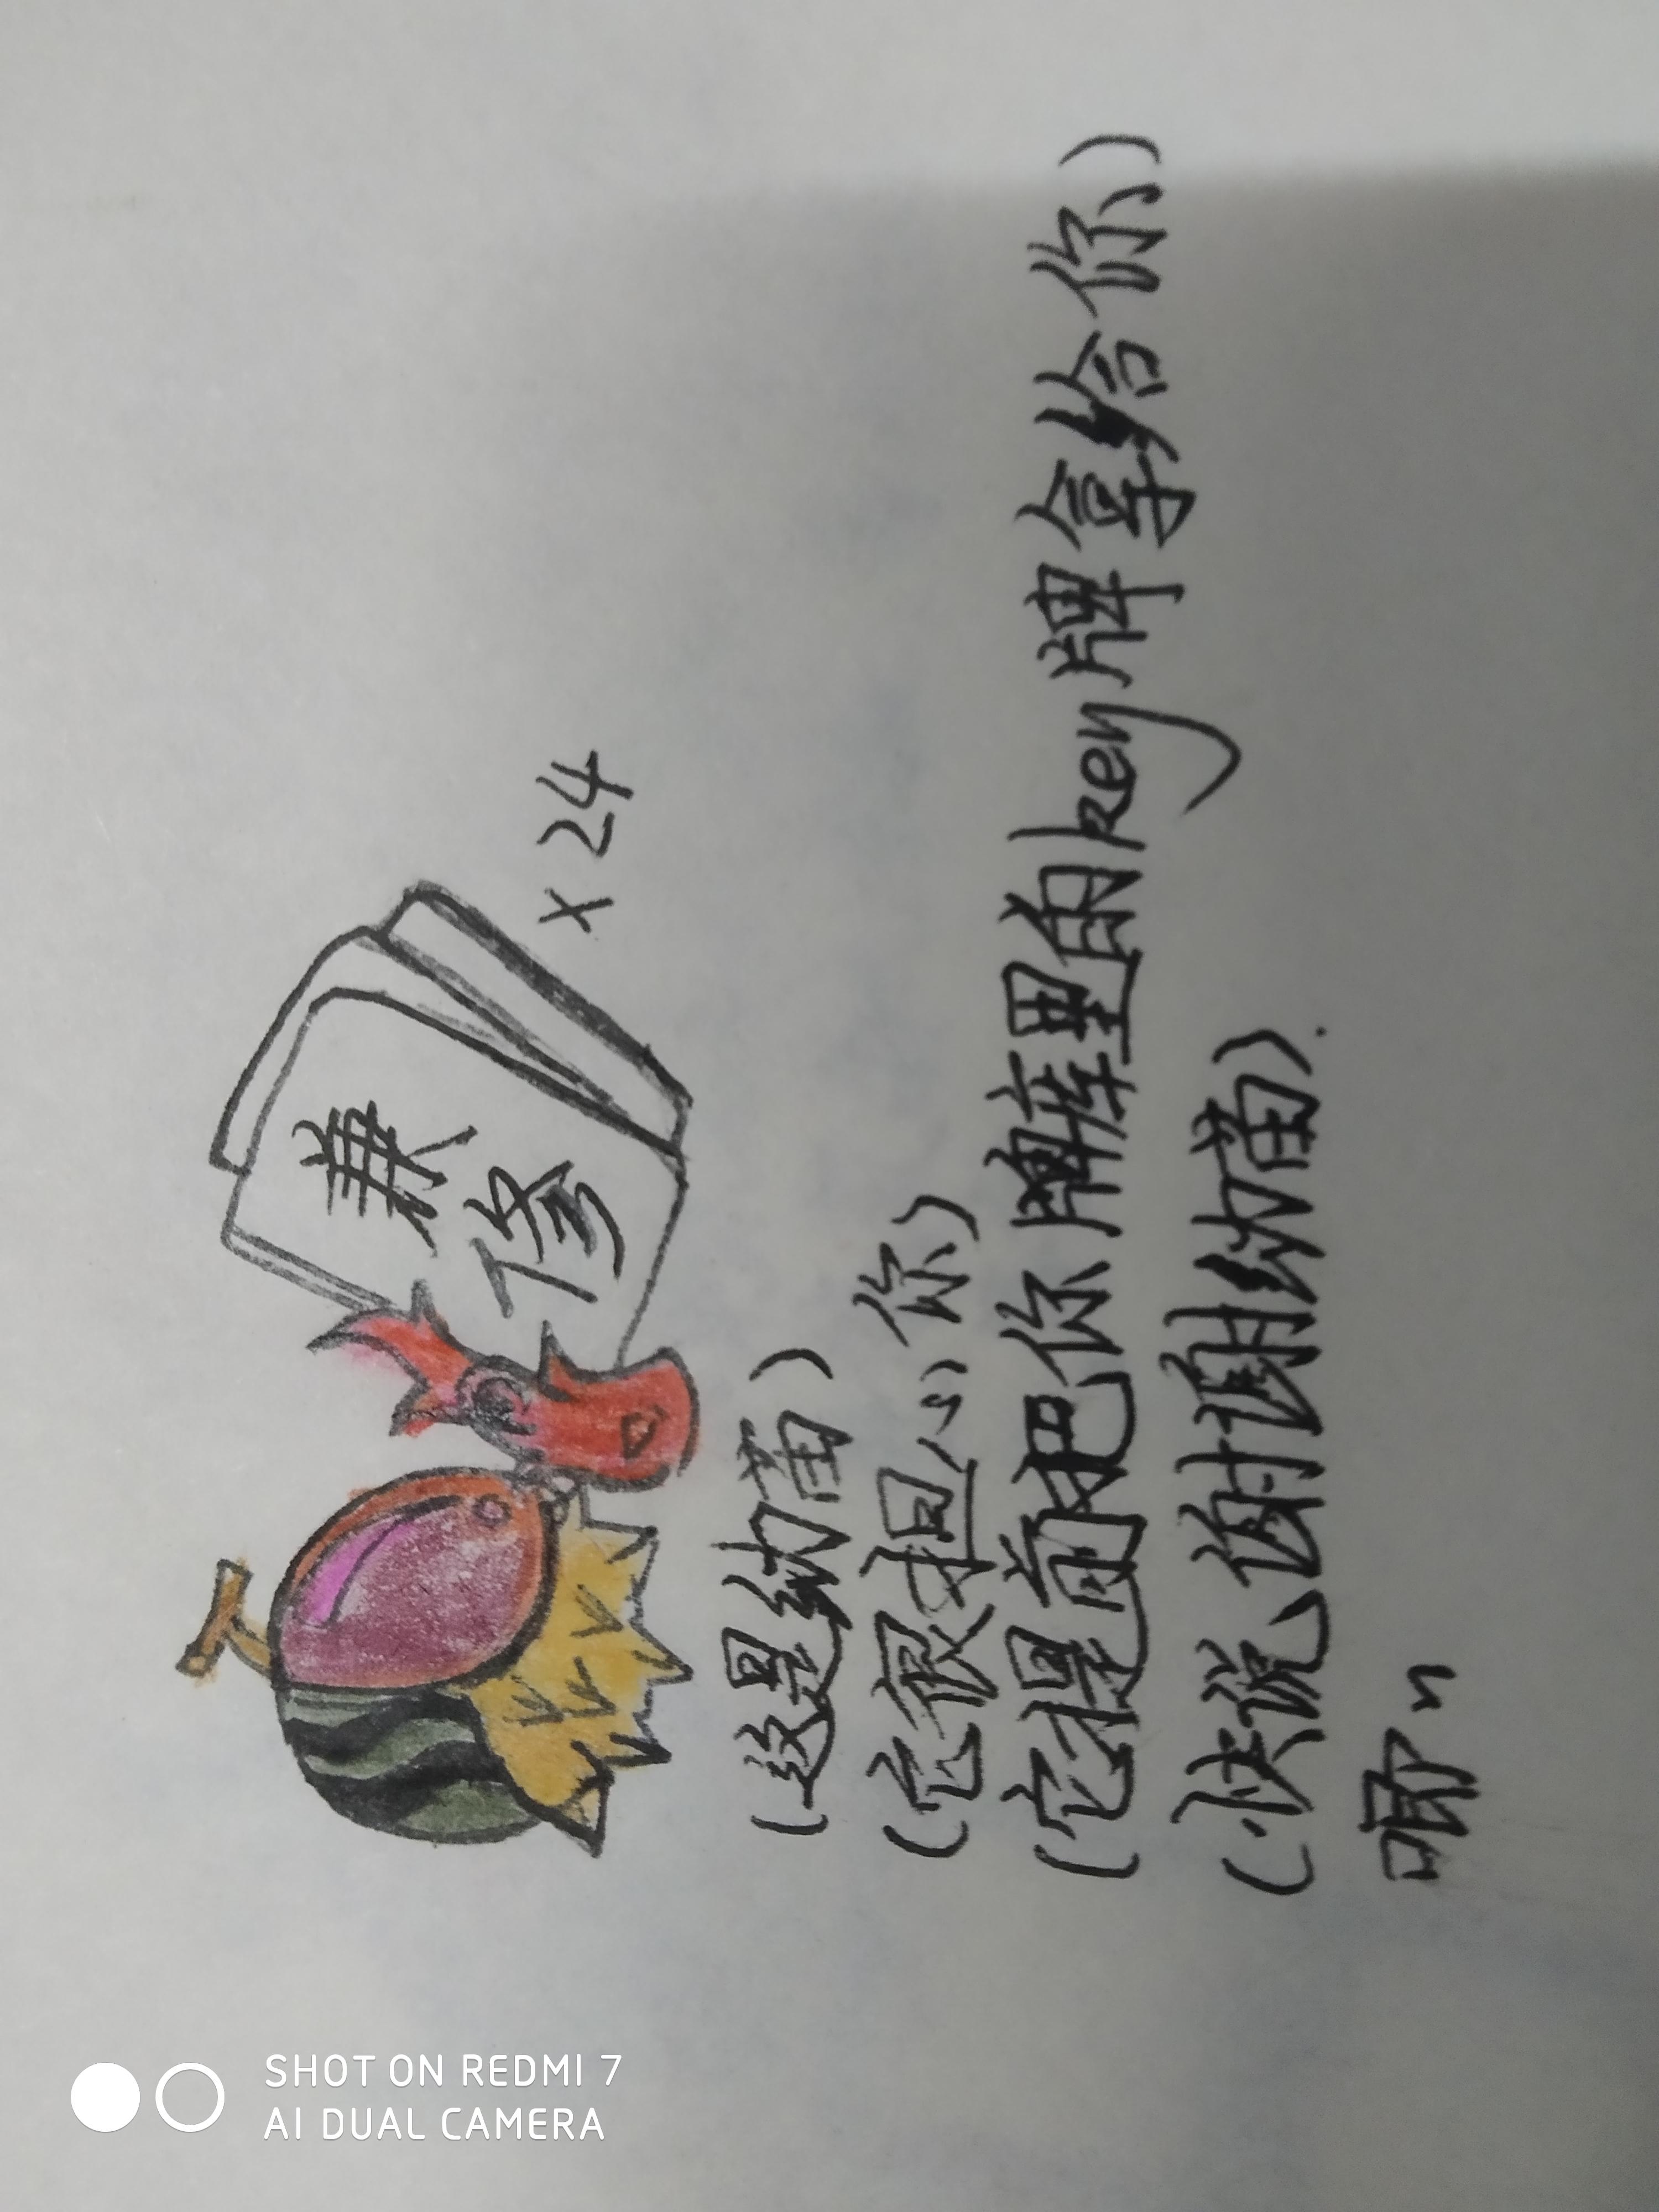 兼
修
×24
(这是纳苗)
(它很担心你)
(它提前把你牌库里的key牌拿给你)
(快说、谢谢纳苗)
SHOT ON REDMI 7
AI DUAL CAMERA